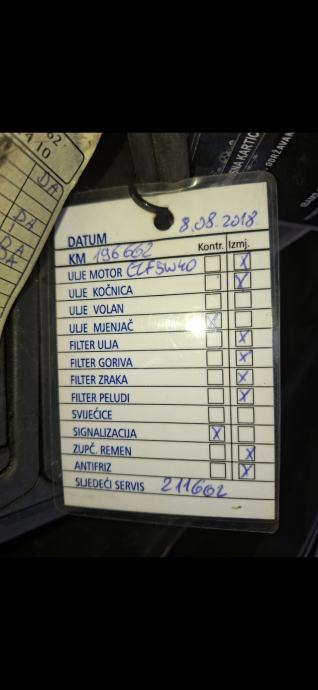 62
A 10
DA
DA
DA
DA
SNA KARTIC
ODRŽAVAN
DATUM 8.08.2018
KM 196662 Kontr. Izmj.
ULJE MOTOR ELF 5W40 X
ULJE KOČNICA X
ULJE VOLAN
ULJE MJENJAČ X
FILTER ULJA X
FILTER GORIVA X
FILTER ZRAKA X
FILTER PELUDI X
SVIJEĆICE
SIGNALIZACIJA X
ZUPČ. REMEN X
ANTIFRIZ X
SLJEDEĆI SERVIS 211662